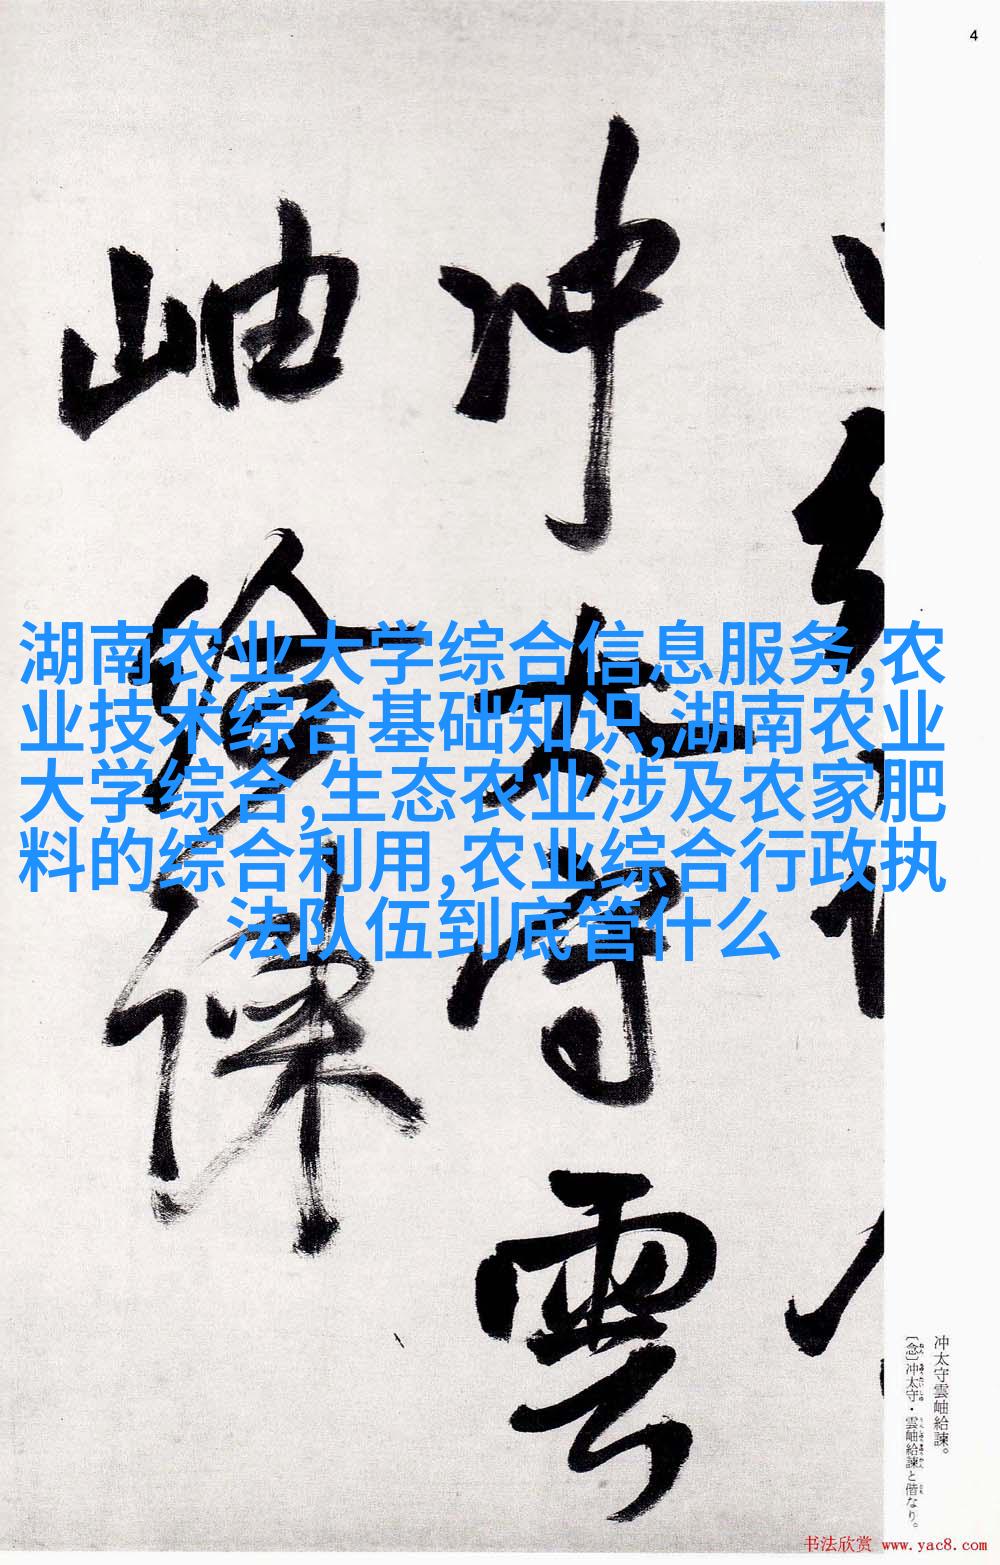 4
冲太守雲
岫給諫
湖南农业大学综合信息服务,农
业技术综合基础知识,湖南农业
大学综合,生态农业涉及农家肥
料的综合利用,农业综合行政执
法队伍到底管什么
冲太守雲岫給諫。
〔念〕冲太守・雲岫給諫と偕なり。
书法欣赏 www.yac8.com